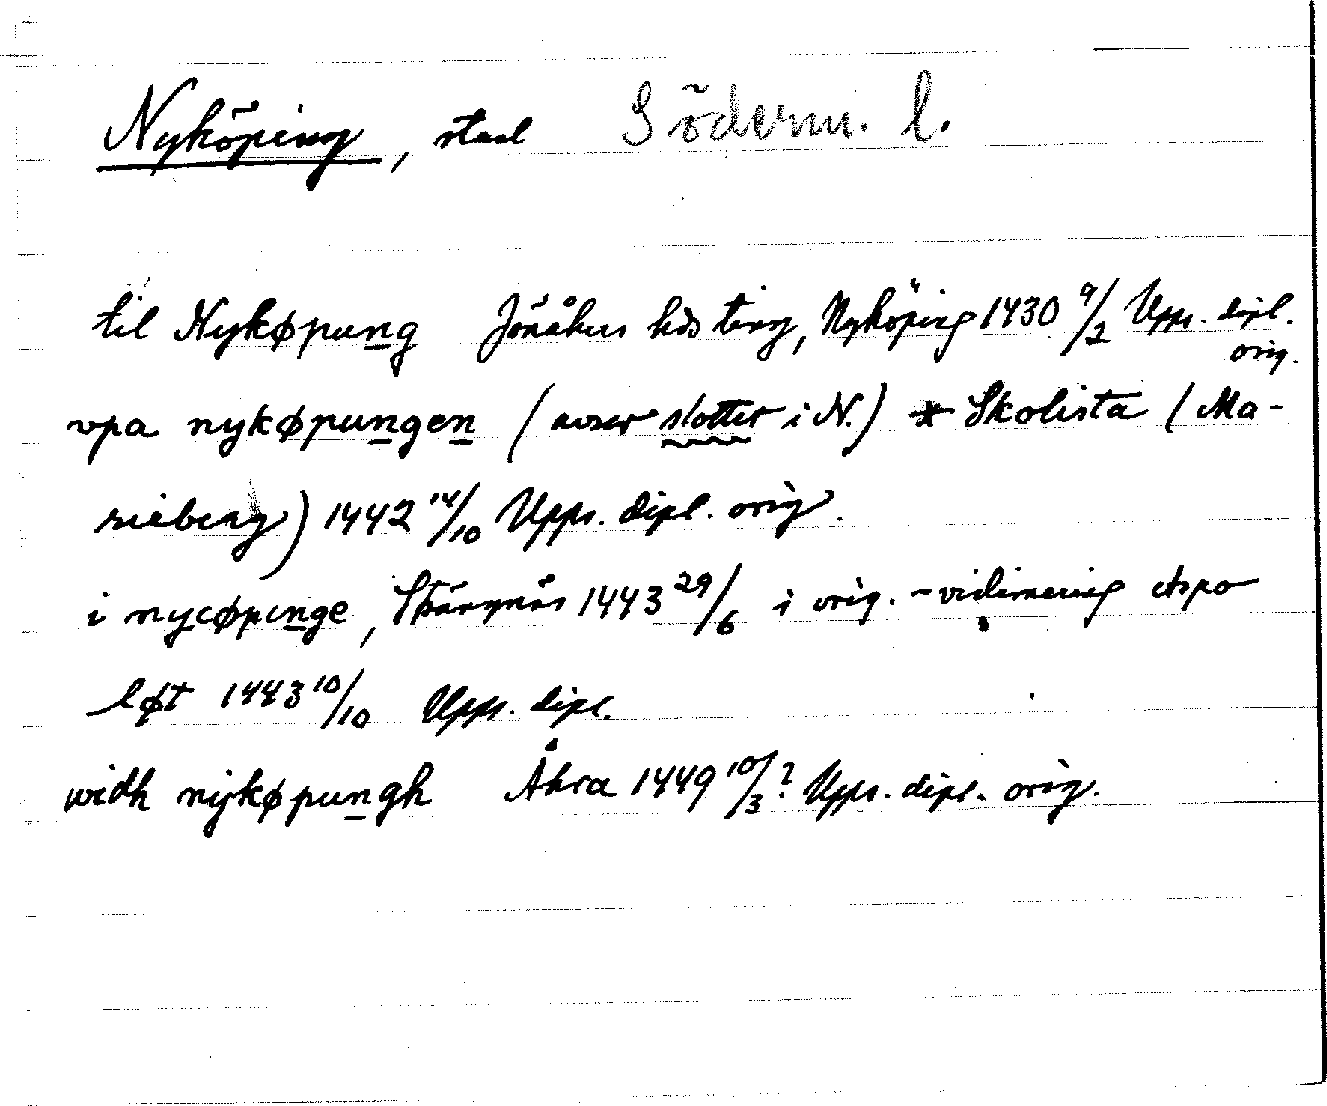 Nyköping, stad Söderm. l.
til Nykøpung Jönåkers hds ting, Nyköping 1430 9/2 Upps. dipl.
orig.
vpa nykøpungen (avser slottet i N.) * Skolista (Ma-
rieberg) 1442 14/10 Upps. dipl. orig.
i nycøpunge, 1443 29/6 i orig. -vidimering
løt 1443 10/10 Upps. dipl.
widh nijkøpungh Åkra 1449 10/3? Upps. dipl. orig.